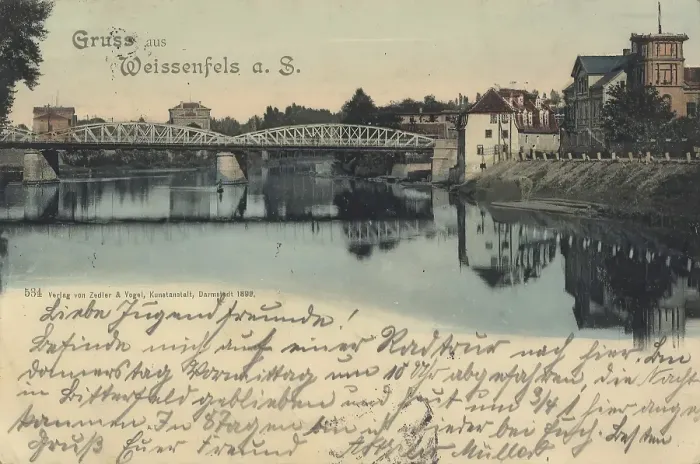 Gruss aus
Weissenfels a. S.
534 Verlag von Zedler & Vogel, Kunstanstalt, Darmstadt 1898.
Liebe Jugendfreunde!
Befinde mich auf einer Radtour nach hier. Bin
donnerstag Vormittag um 10 Uhr abgefahren, die Nacht
in Bitterfeld geblieben und heut um 3/4 1 hier angek
kommen. In 8 Tagen bin ich wieder bei Euch. Besten
Gruß Euer Freund Müller